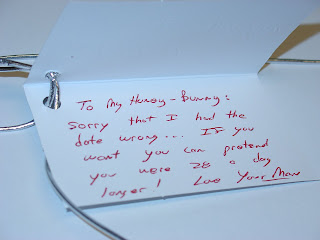 To My Honey-Bunny:
Sorry that I had the
date wrong... If you
want you can pretend
you were 28 a day
longer! Love Your Man